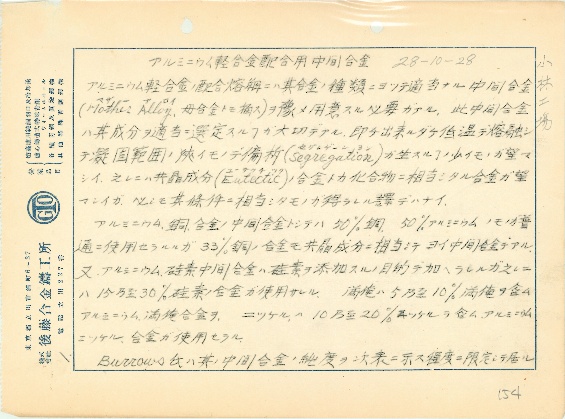 アルミニウム軽合金配合用中間合金 28-10-28
アルミニウム軽合金ノ配合熔解ニハ其合金ノ種類ニヨツテ適当ナル中間合金
(Mother Alloy, 母合金トモ稱ス)ヲ豫メ用意スル必要ガアル。此中間合金
ハ其成分ヲ適当ニ選定スル事ガ大切デアル。即チ出来ルダケ低温デ熔解シ
テ凝固範囲ノ狭イモノデ偏析(Segregation)ガ生ズル事ノ少イモノガ望マ
シイ。之レニハ共晶成分(Eutectic)ノ合金トカ化合物ニ相当シタル合金ガ望
マシイガ、必シモ其條件ニ相当シタモノガ得ラレル譯デハナイ。
アルミニウム、銅、合金ノ中間合金トシテハ 50%銅、50%アルミニウムノモノガ普
通ニ使用セラルルガ 33%銅ノ合金モ共晶成分ニ相当シテヨイ中間合金デアル。
又、アルミニウム、硅素中間合金ハ硅素ヲ添加スル目的デ加ヘラレルガ之レニ
ハ 15乃至30%硅素ノ合金ガ使用サレル。 満俺ハ 5乃至10%満俺ヲ含ム
アルミニウム満俺合金ヲ、 ニツケルハ 10乃至20%ニツケルヲ含ムアルミニウム
ニツケル、合金ガ使用セラル。
Burrows氏ハ其ノ中間合金ノ純度ヲ次表ニ示ス程度ニ限定シテ居ル
154
小林工場
株式会社 後藤合金鑄工所